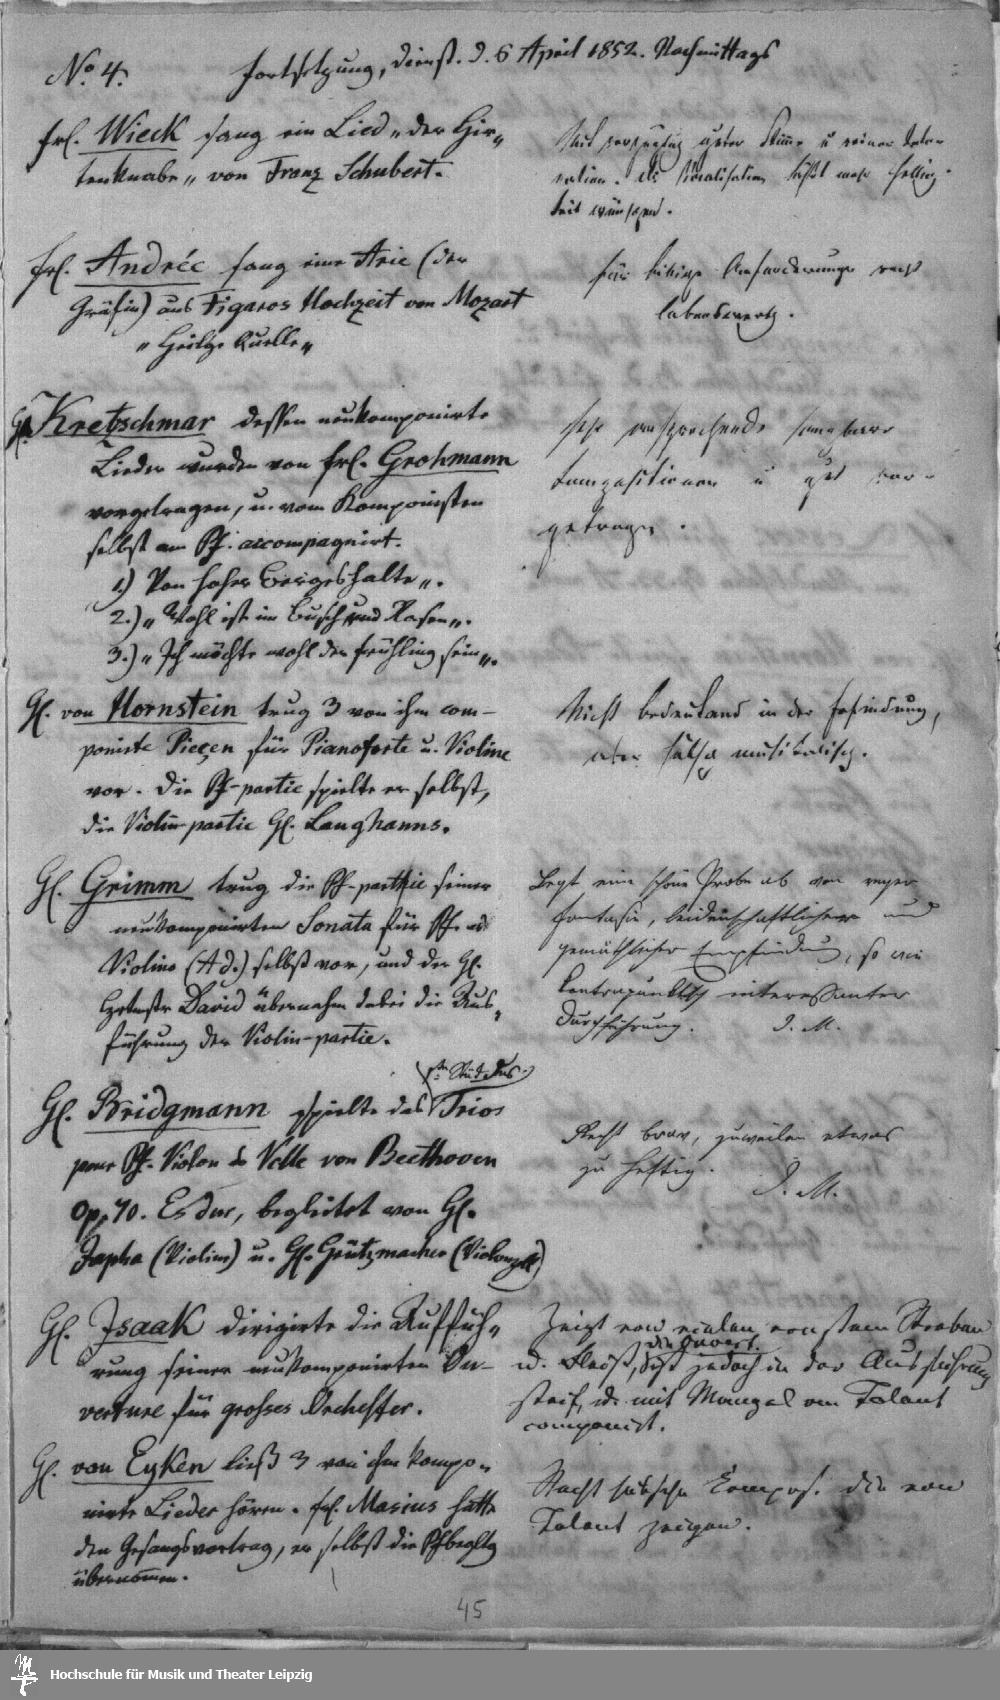 No. 4. Fortsetzung, Dienst. d. 6 April 1852. Nachmittags
Frl. Wieck sang ein Lied „der Hir-
tenknabe„ von Franz Schubert.
Mit guter Stimme u reiner Into-
nation. Die Vocalisation läßt mehr Hellig-
keit wünschen.
Frl. Andrée sang eine Arie (der
Gräfin) aus Figaros Hochzeit von Mozart
„Heilge Quelle„
für Anforderungen recht
lobenswerth.
Kretzschmar dessen neukomponirte
Lieder wurden von Frl. Grohmann
vorgetragen, u. vom Komponisten
selbst am Pf. accompagnirt.
1.) Von hoher Bergeshalte„.
2.) „Wohl ist im Busch und Rasen„.
3.) „Ich möchte wohl der Frühling sein„.
Sehr ansprechende sangbare
Compositionen u gut vor-
getragen.
H. von Hornstein trug 3 von ihm com-
ponirte Pieçen für Pianoforte u. Violine
vor. Die Pf-partie spielte er selbst,
die Violin-partie H. Langhanns.
Nicht bedeutend in der Erfindung,
aber hübsch musikalisch.
H. Grimm trug die Pf-parthie seiner
neukomponirten Sonata für Pf. u
Violine (A d.) selbst vor, und der H.
David übernahm dabei die Aus-
führung der Violin-partie.
Legt eine schöne Probe ab von reger
Fantasie, leidenschaftlicher und
gemüthlicher Empfindung, so wie
kontrapunktisch interessanter
Durchführung. I. M.
H. Bridgmann spielte das Trios
pour Pf. Violon & Velle von Beethoven
Op. 70. Es dur, begleitet von H.
Japha (Violine) u. H. Grützmacher (Violoncell)
Recht brav, zuweilen etwas
zu heftig. I. M.
H. Isaak dirigirte die Auffüh-
rung seiner neukomponirten Ou-
verture für grosses Orchester.
Zeigt von vielem ernstem Streben
u. Fleiß, die Ouvert. ist jedoch in der Ausführung
steif, u. mit Mangel an Talent
componirt.
H. von Eyken ließ 3 von ihm kompo-
nirte Lieder hören. Frl. Masius hatte
den Gesangsvortrag, er selbst die Pfbegltg
übernommen.
Recht hübsche Compos. die von
Talent zeigen.
45
Hochschule für Musik und Theater Leipzig